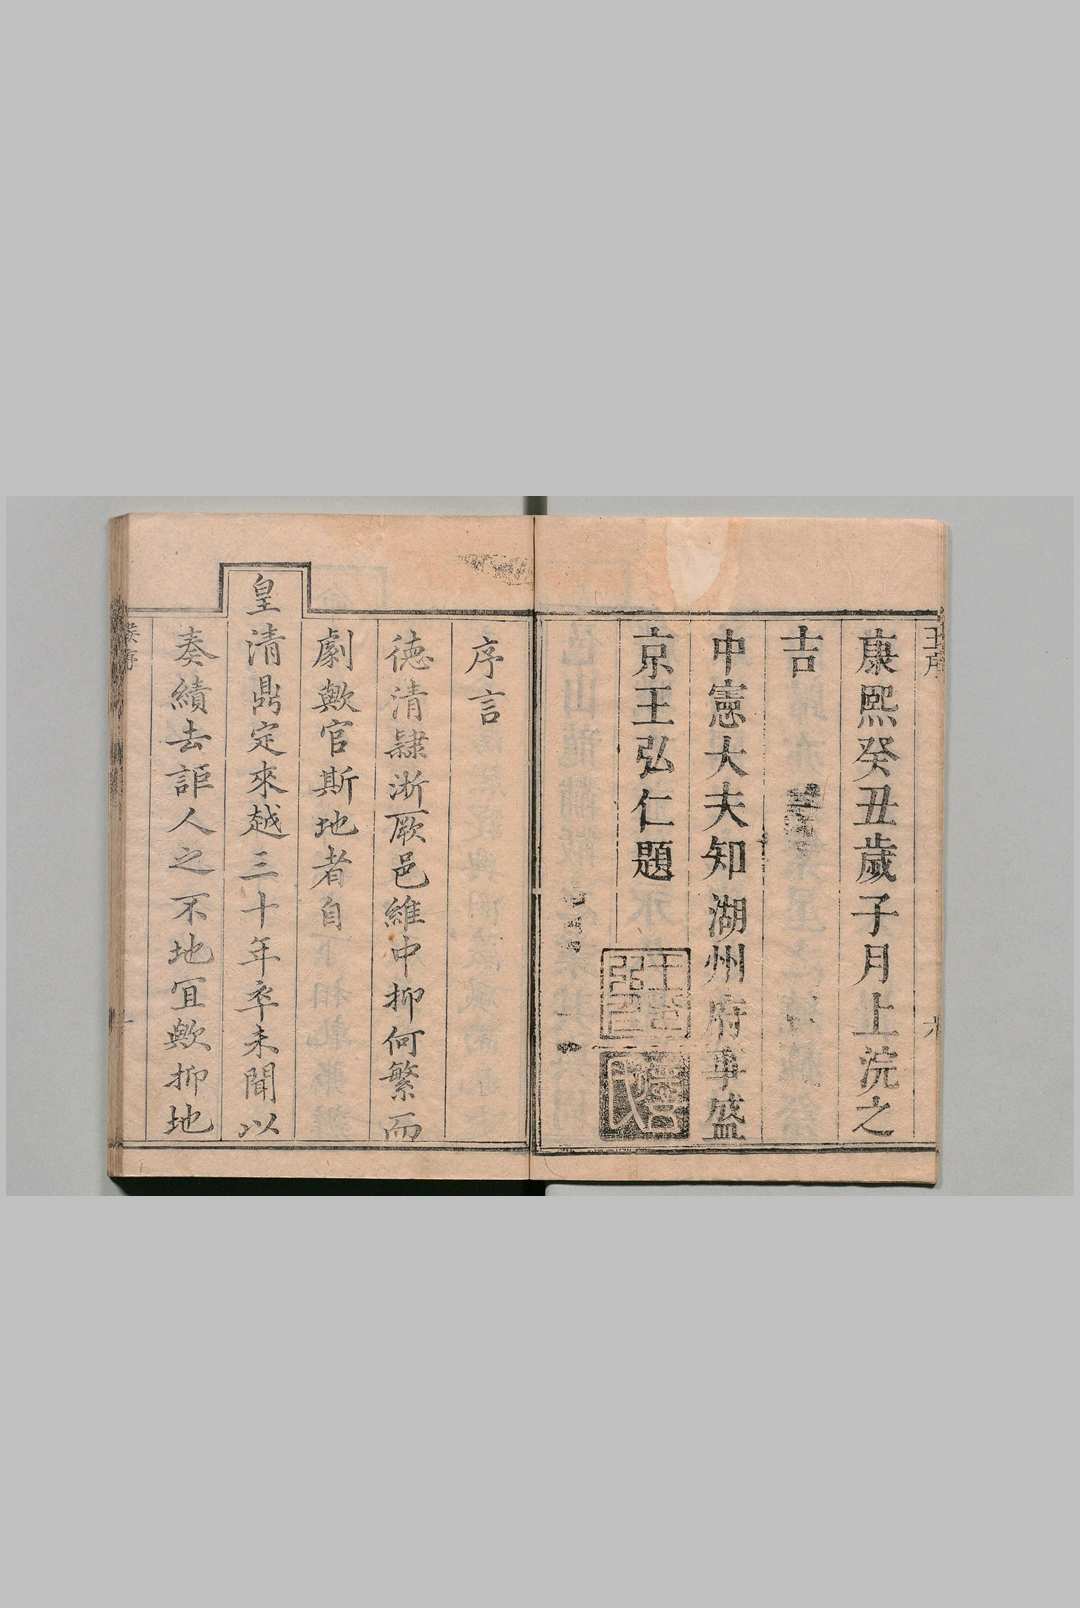 康熙癸丑歲子月上浣之
吉
中憲大夫知湖州府事盛
京王弘仁題
序言
德清隸浙厥邑維中抑何繁而
劇歟官斯地者自
皇清鼎定來越三十年卒未聞以
奏績去詎人之不地宜歟抑地